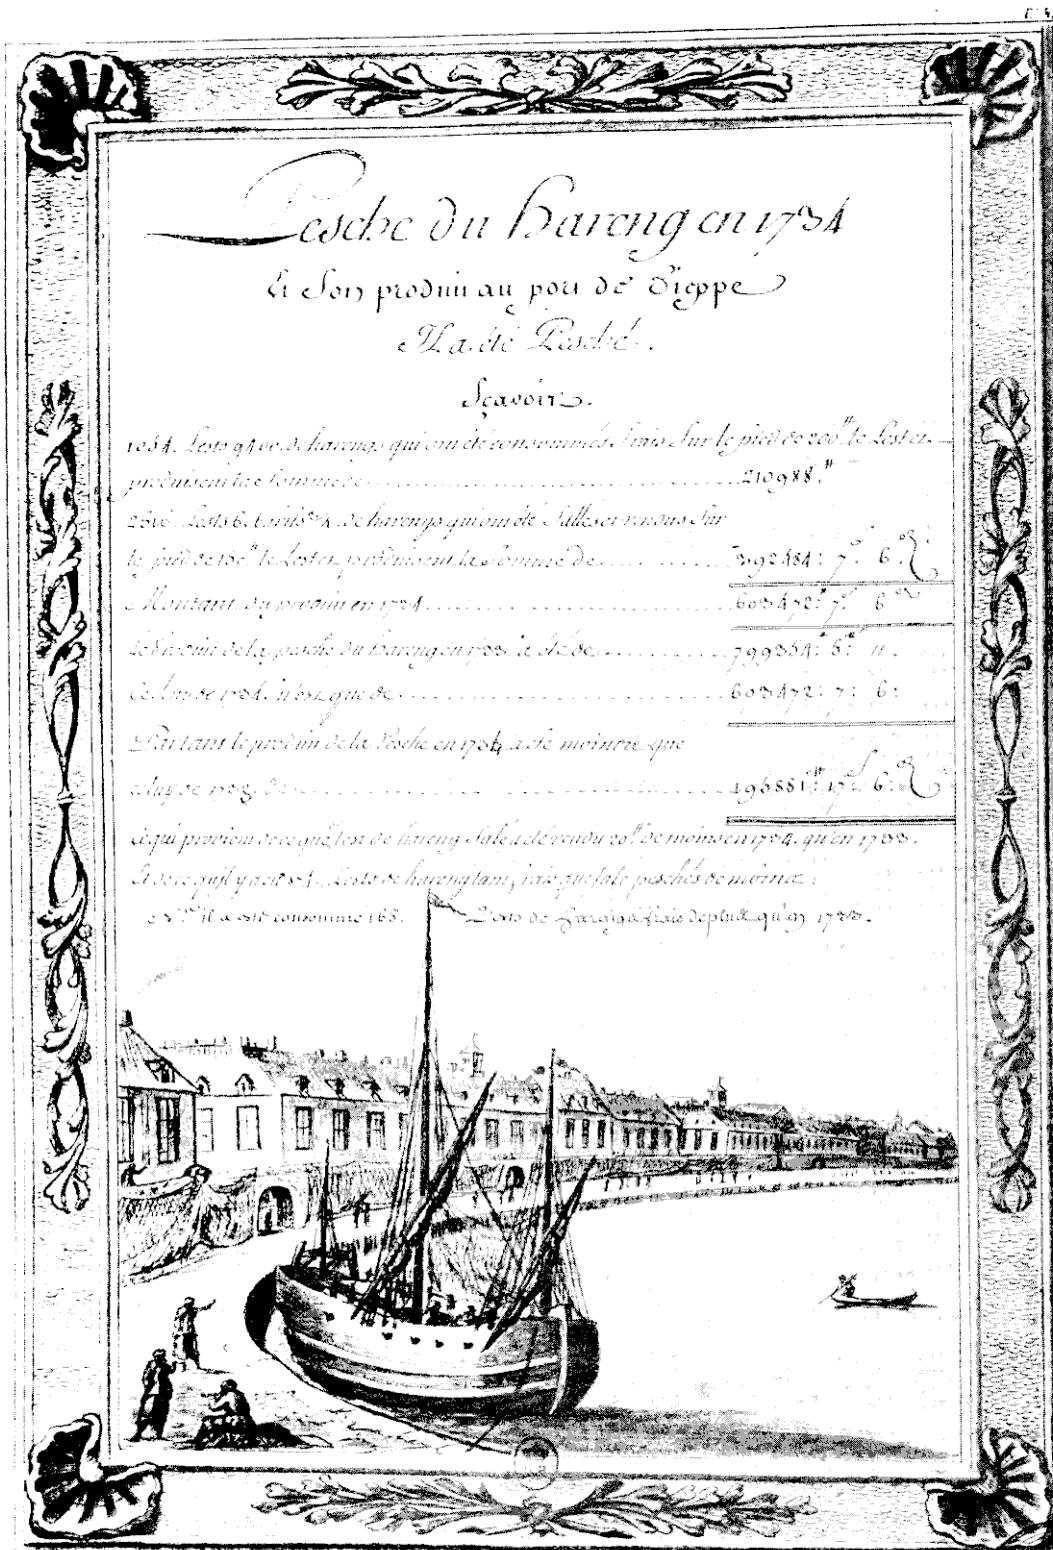 Pesche du hareng en 1734
Et Son produit au port de Dieppe
Il a été Pesché.
Sçavoir.
1054. Lests 9400. de harengs qui ont été consommés frais Sur le pied de 200ᵗᵗ le Lest et
produisent la Somme de ........ 210988.ᵗᵗ
2616. Lests 6. barils de harengs qui ont été Sallés et vendus Sur
le pied de 150ᵗᵗ le Lest et produisent la Somme de ........ 392484: 7ˢ 6ᵈ
Montant du produit en 1734 ........ 603472ᵗᵗ 7ˢ 6ᵈ
Le Produit de la pesche du hareng en 1733. a été de ........ 799354ᵗᵗ 5ˢ 11.
Celuy de 1734. n'est que de ........ 603472: 7: 6:
Partant le produit de la Pesche en 1734 a été moindre que
celuy de 1733. de ........ 195881ᵗᵗ 17ˢ 6ᵈ
Ce qui provient de ce que le Lest de hareng Salé a été vendu 20ᵗᵗ de moins en 1734. qu'en 1733.
Et de ce qu'il y a eu Lests de hareng tant frais que salé peschés de moins
il a été consommé 165. Lests de harengs frais de plus qu'en 1733.